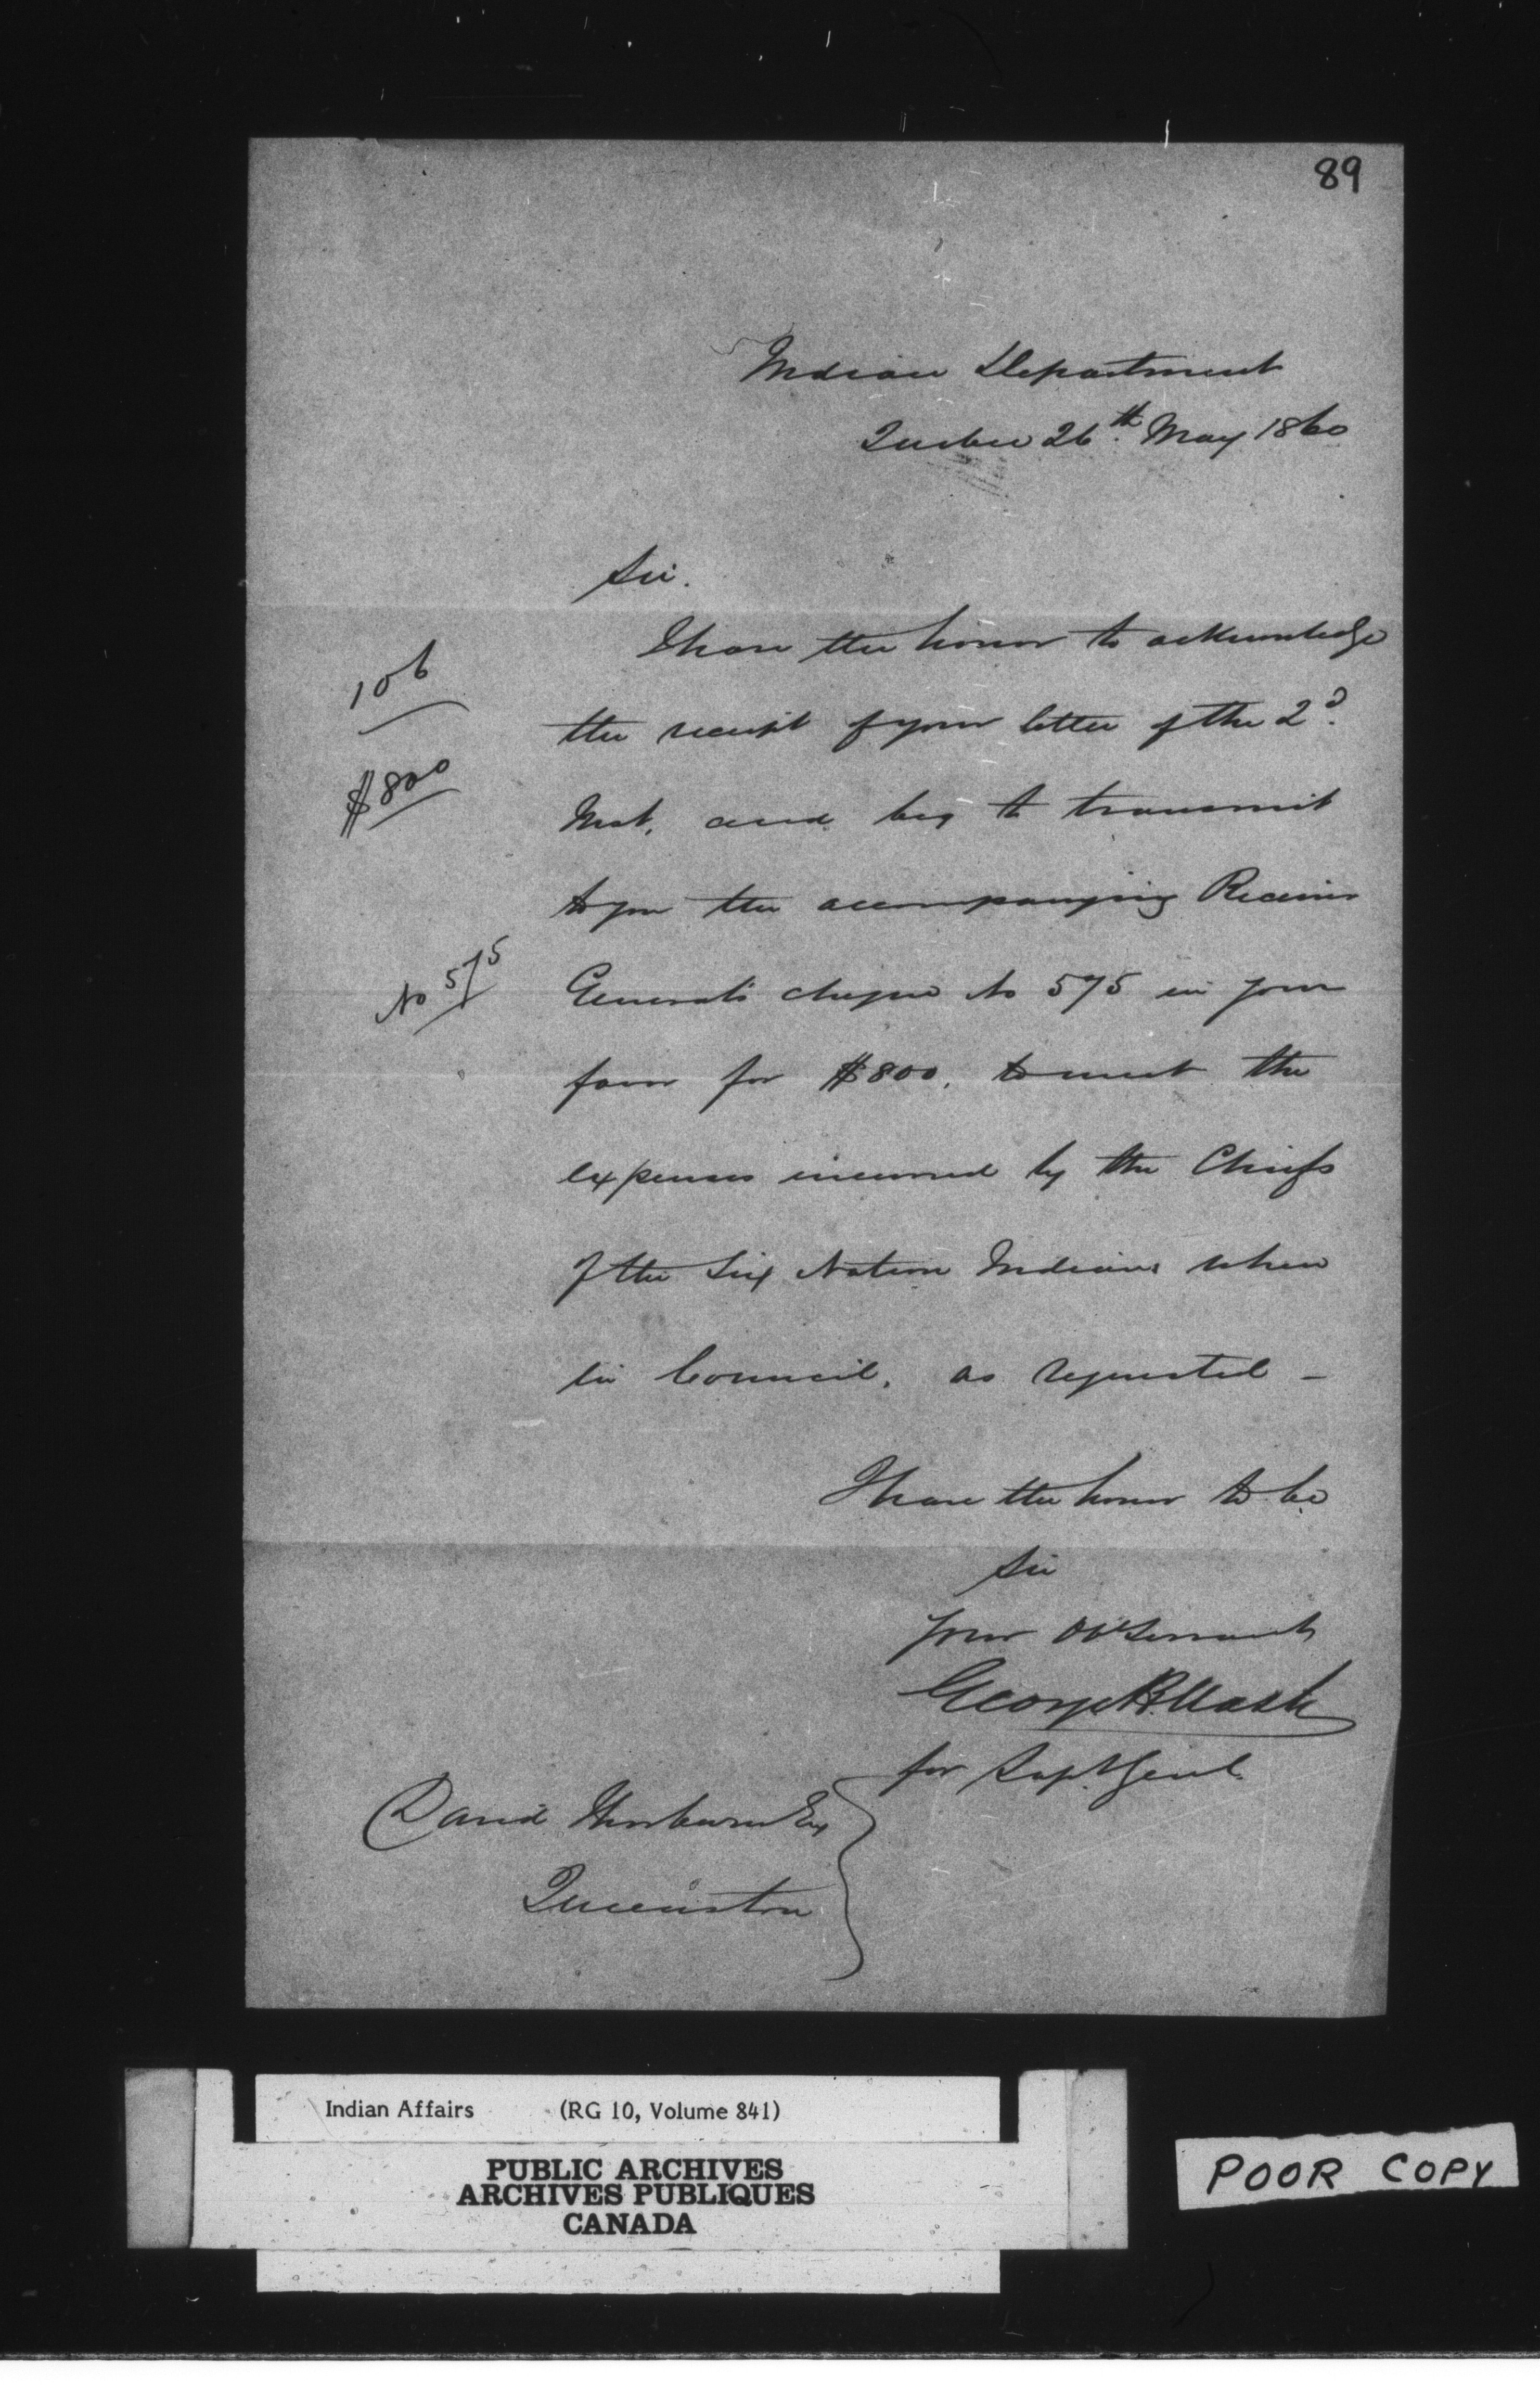 89
Indian Department
Quebec 26th May 1860
Sir.
I have the honor to acknowledge
106
the receipt of your letter of the 2d.
$800
Inst. and beg to transmit
to you the accompanying Receiver
No 575
General's cheque No 575 in your
favor for $800. to meet the
expenses incurred by the Chiefs
of the Six Nation Indians when
in Council, as requested -
I have the honor to be
Sir
Your Obt Servant
George R. Nash
for Supt Genl.
David Thorburn Esq
Queenston
Indian Affairs (RG 10, Volume 841)
PUBLIC ARCHIVES
ARCHIVES PUBLIQUES
CANADA
POOR COPY